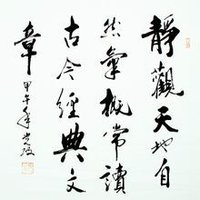 靜觀天地自
然氣概常讀
古今經典文
章
甲午年